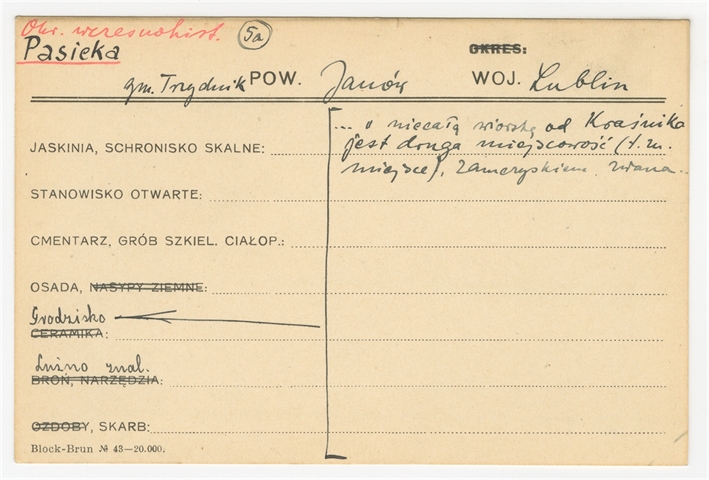 Okr. wczesnohist.
5a
Pasieka
OKRES:
gm. Trzydnik POW. Janów WOJ. Lublin
... o niecałą wiorstę od Kraśnika
jest druga miejscowość (t. zn.
miejsce), Zamczyskiem zwana...
JASKINIA, SCHRONISKO SKALNE:
STANOWISKO OTWARTE:
CMENTARZ, GRÓB SZKIEL. CIAŁOP.:
OSADA, NASYPY ZIEMNE:
Grodzisko
CERAMIKA:
Luźno znal.
BROŃ, NARZĘDZIA:
OZDOBY, SKARB:
Block-Brun № 43—20.000.